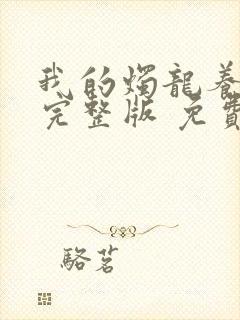 我的燭龍養
完整版 免費
駱茗